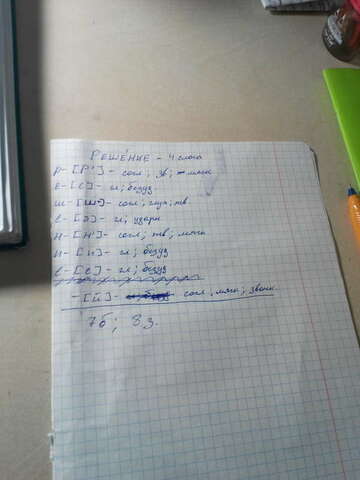 РЕШЕ́НИЕ - 4 слога
Р-[Р'] - согл; зв; мягк
Е-[Е] - гл; безуд
Ш-[Ш] - согл; глух; тв
Е-[Э] - гл; ударн
Н-[Н'] - согл; тв; мягк
И-[И] - гл; безуд
Е-[Е] - гл; безуд
-[Й] - согл, мягк; звонк
7б; 8з.